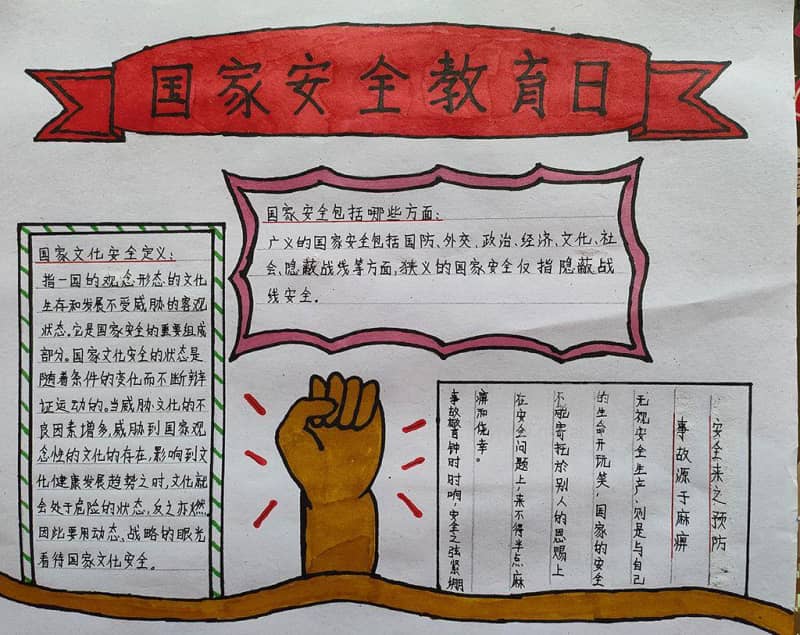 国家安全教育日
国家安全包括哪些方面：
广义的国家安全包括国防、外交、政治、经济、文化、社
会、隐蔽战线等方面，狭义的国家安全仅指隐蔽战
线安全。
国家文化安全定义：
指一国的观念形态的文化
生存和发展不受威胁的客观
状态。它是国家安全的重要组成
部分。国家文化安全的状态是
随着条件的变化而不断辩
证运动的。当威胁文化的不
良因素增多，威胁到国家观
念性的文化的存在，影响到文
化健康发展趋势之时，文化就
会处于危险的状态，反之亦然。
因此要用动态、战略的眼光
看待国家文化安全。
安全来之预防
事故源于麻痹
无视安全生产，则是与自己
的生命开玩笑，国家的安全
不能寄托於别人的恩赐上
在安全问题上，来不得半点麻
痹和侥幸。
事故警钟时时响，安全之弦紧绷